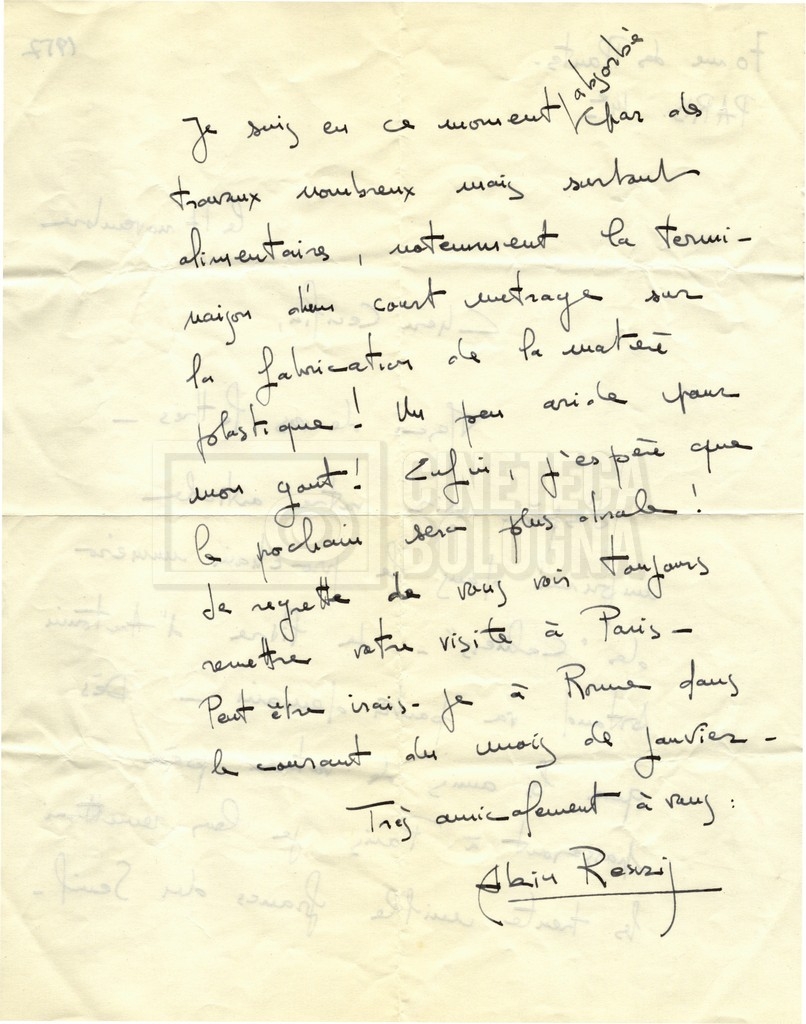 absorbé
Je suis en ce moment par des
travaux nombreux mais surtout
alimentaires, notamment la termi-
naison d'un court metrage sur
la fabrication de la matière
plastique! Un peu aride pour
mon gout! Enfin, j'espère que
le prochain sera plus
Je regrette de vous voir toujours
remettre votre visite à Paris-
Peut être irais-je à Rome dans
le courant du mois de janvier-
Très amicalement à vous:
Alain Resnais
CINETECA
BOLOGNA